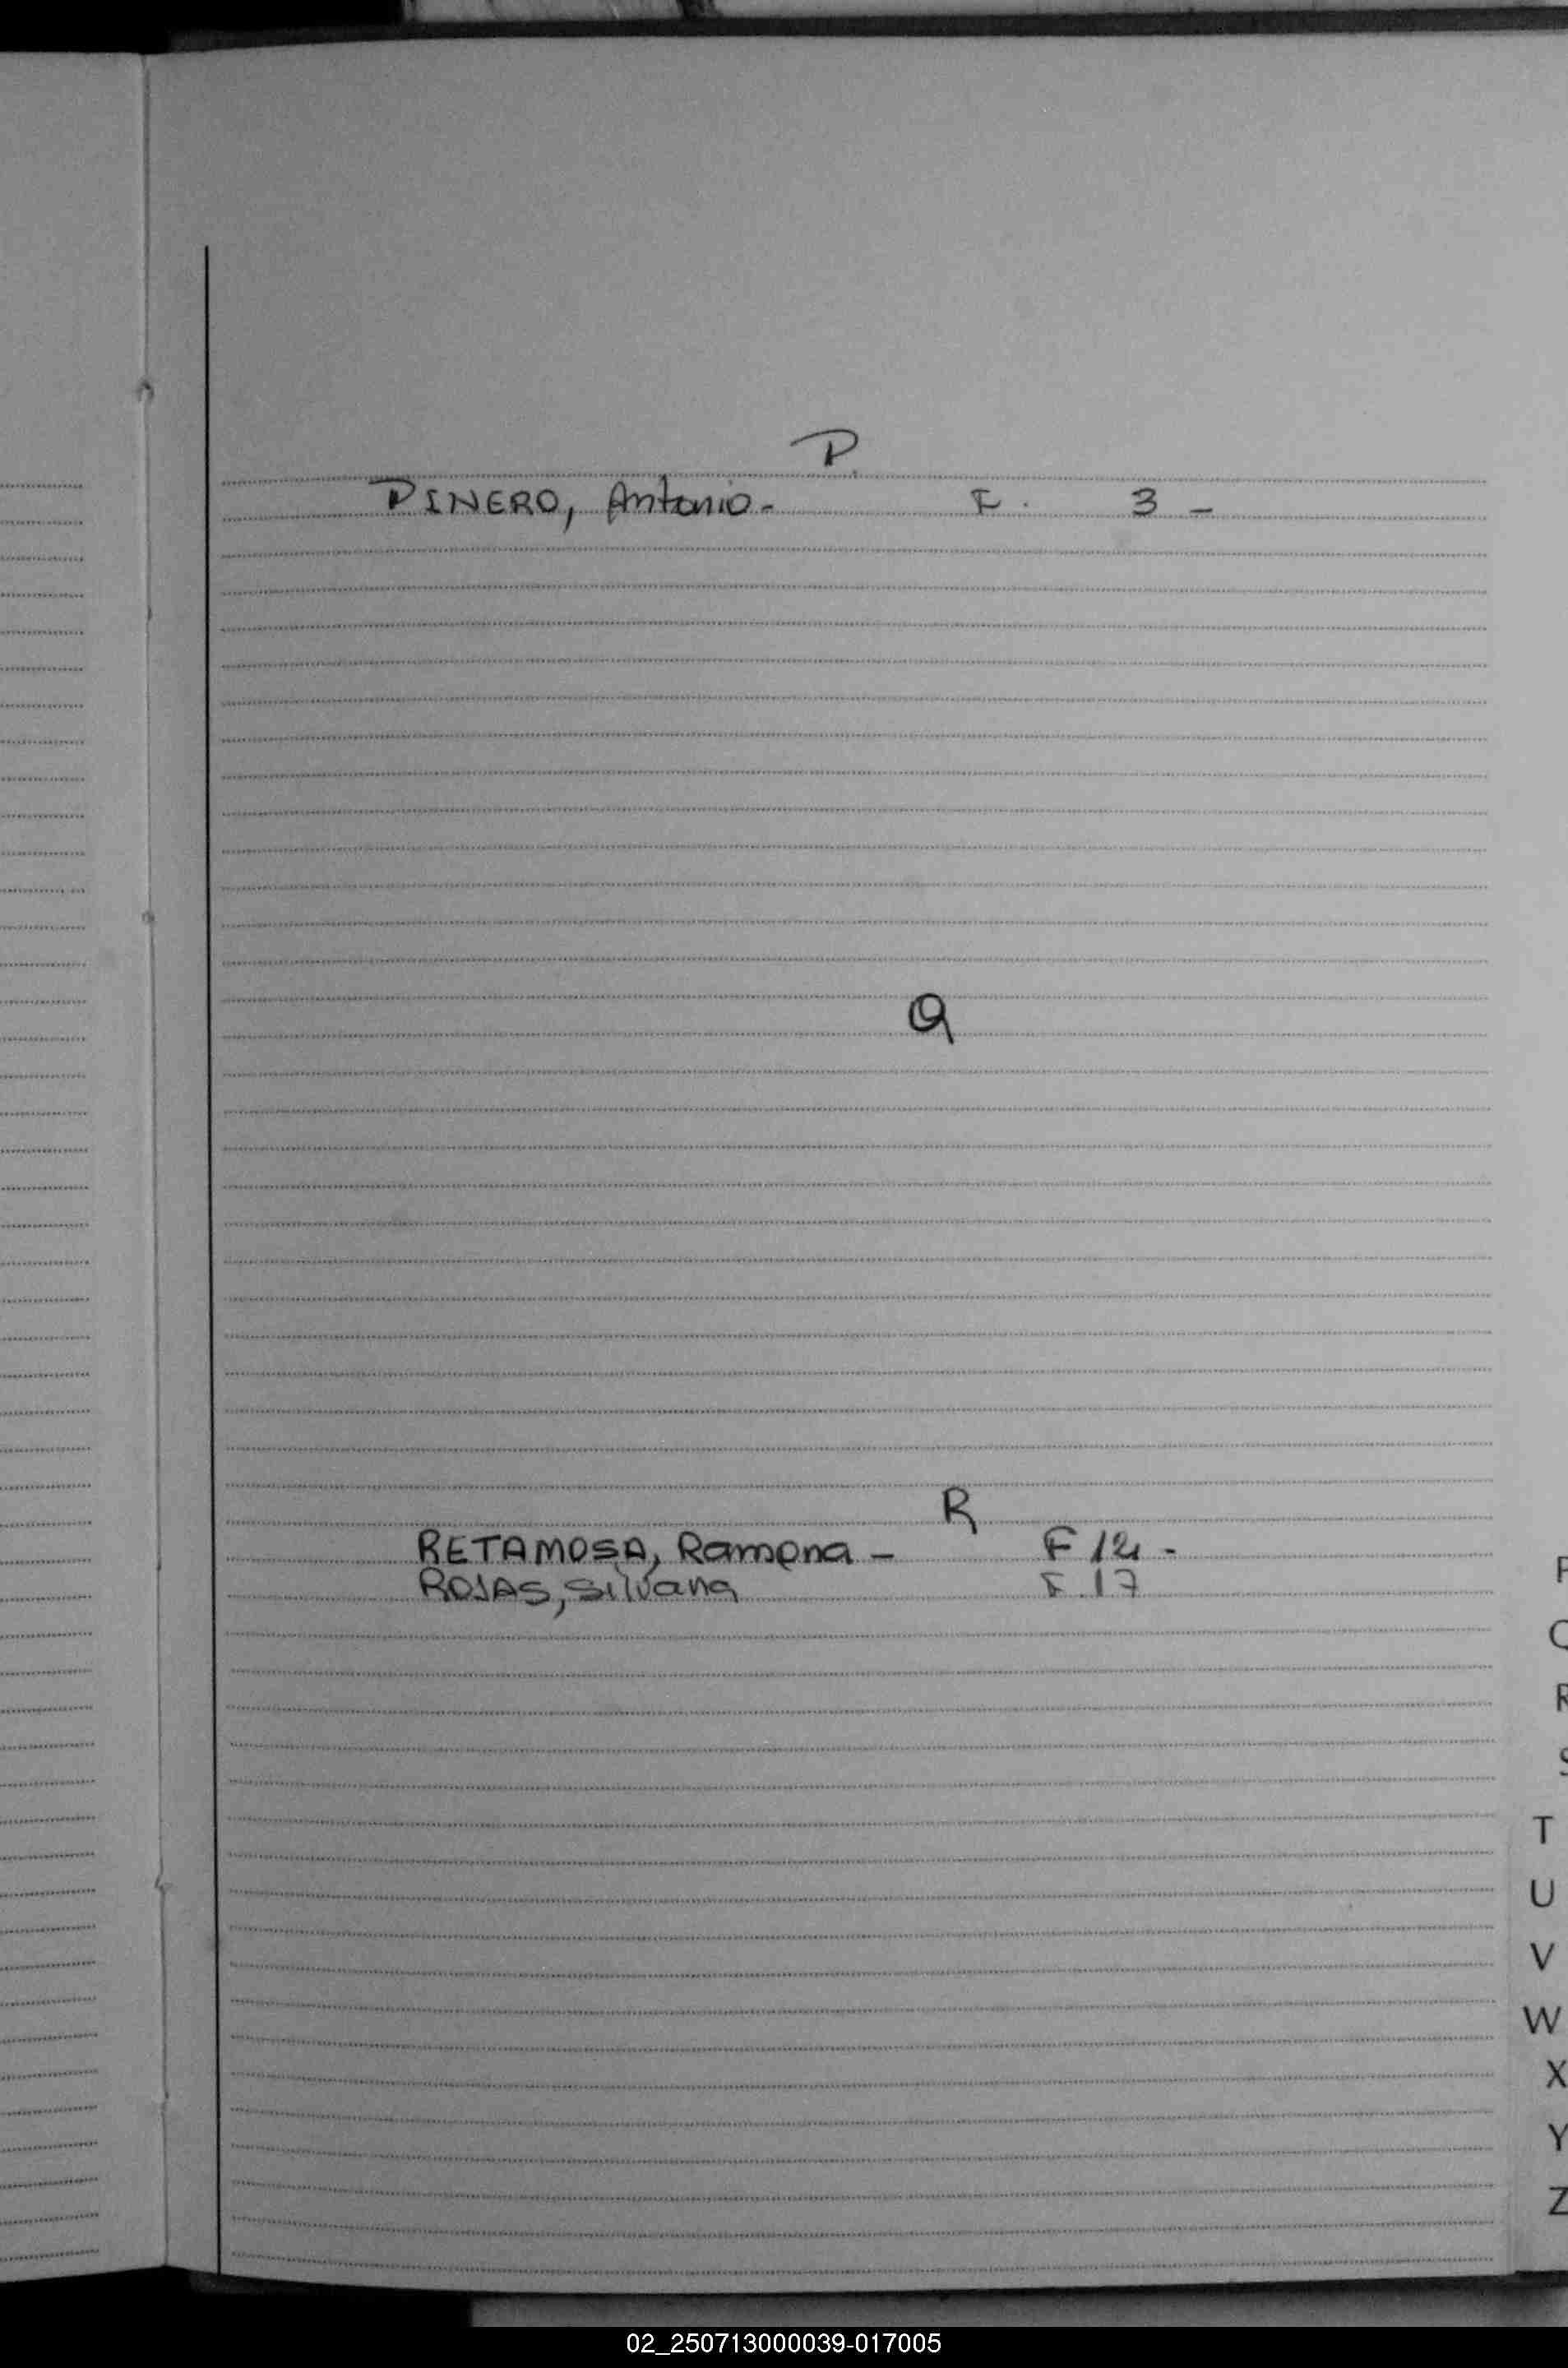 P.
PINERO, Antonio - F. 3 -
Q
R
RETAMOSA, Ramona - F 12 -
ROJAS, Silvana F. 17
P
Q
R
S
T
U
V
W
X
Y
Z
02_250713000039-017005